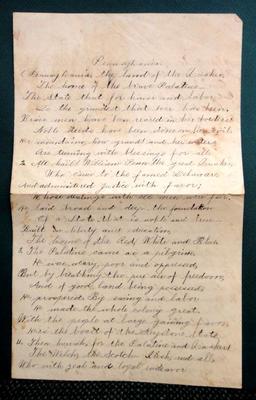 Pennsylvania
Pennsylvania the land of the Quaker,
The home of the brave Palatine
The State that for honor and labor,
Is the grandest that ever has been.
Wise men have been reared in her borders
Noble deeds have been done on her soil
Her mountains, how grand and her waters
Are teeming with blessings for all.
2 All hail William Penn the great Quaker,
Who came to the famed Delaware
And administered justice with favor;
Whose dealings with all men were fair.
He laid broad and deep the foundation
Of a State that is noble and true
Built on liberty and education
The home of the Red, White and Blue
3 The Palatine came as a pilgrim,
He was weary, poor and oppressed,
But by breathing the pure air of freedom,
And of good land being possessed
He prospered By saving and labor
He made the whole colony great.
With the people at large gaining favor,
the heart of the Keystone State
4 Then hurrah for the Palatine and Quaker
The Welch, the Scotch Irish and all,
Who with zeal and loyal endeavor